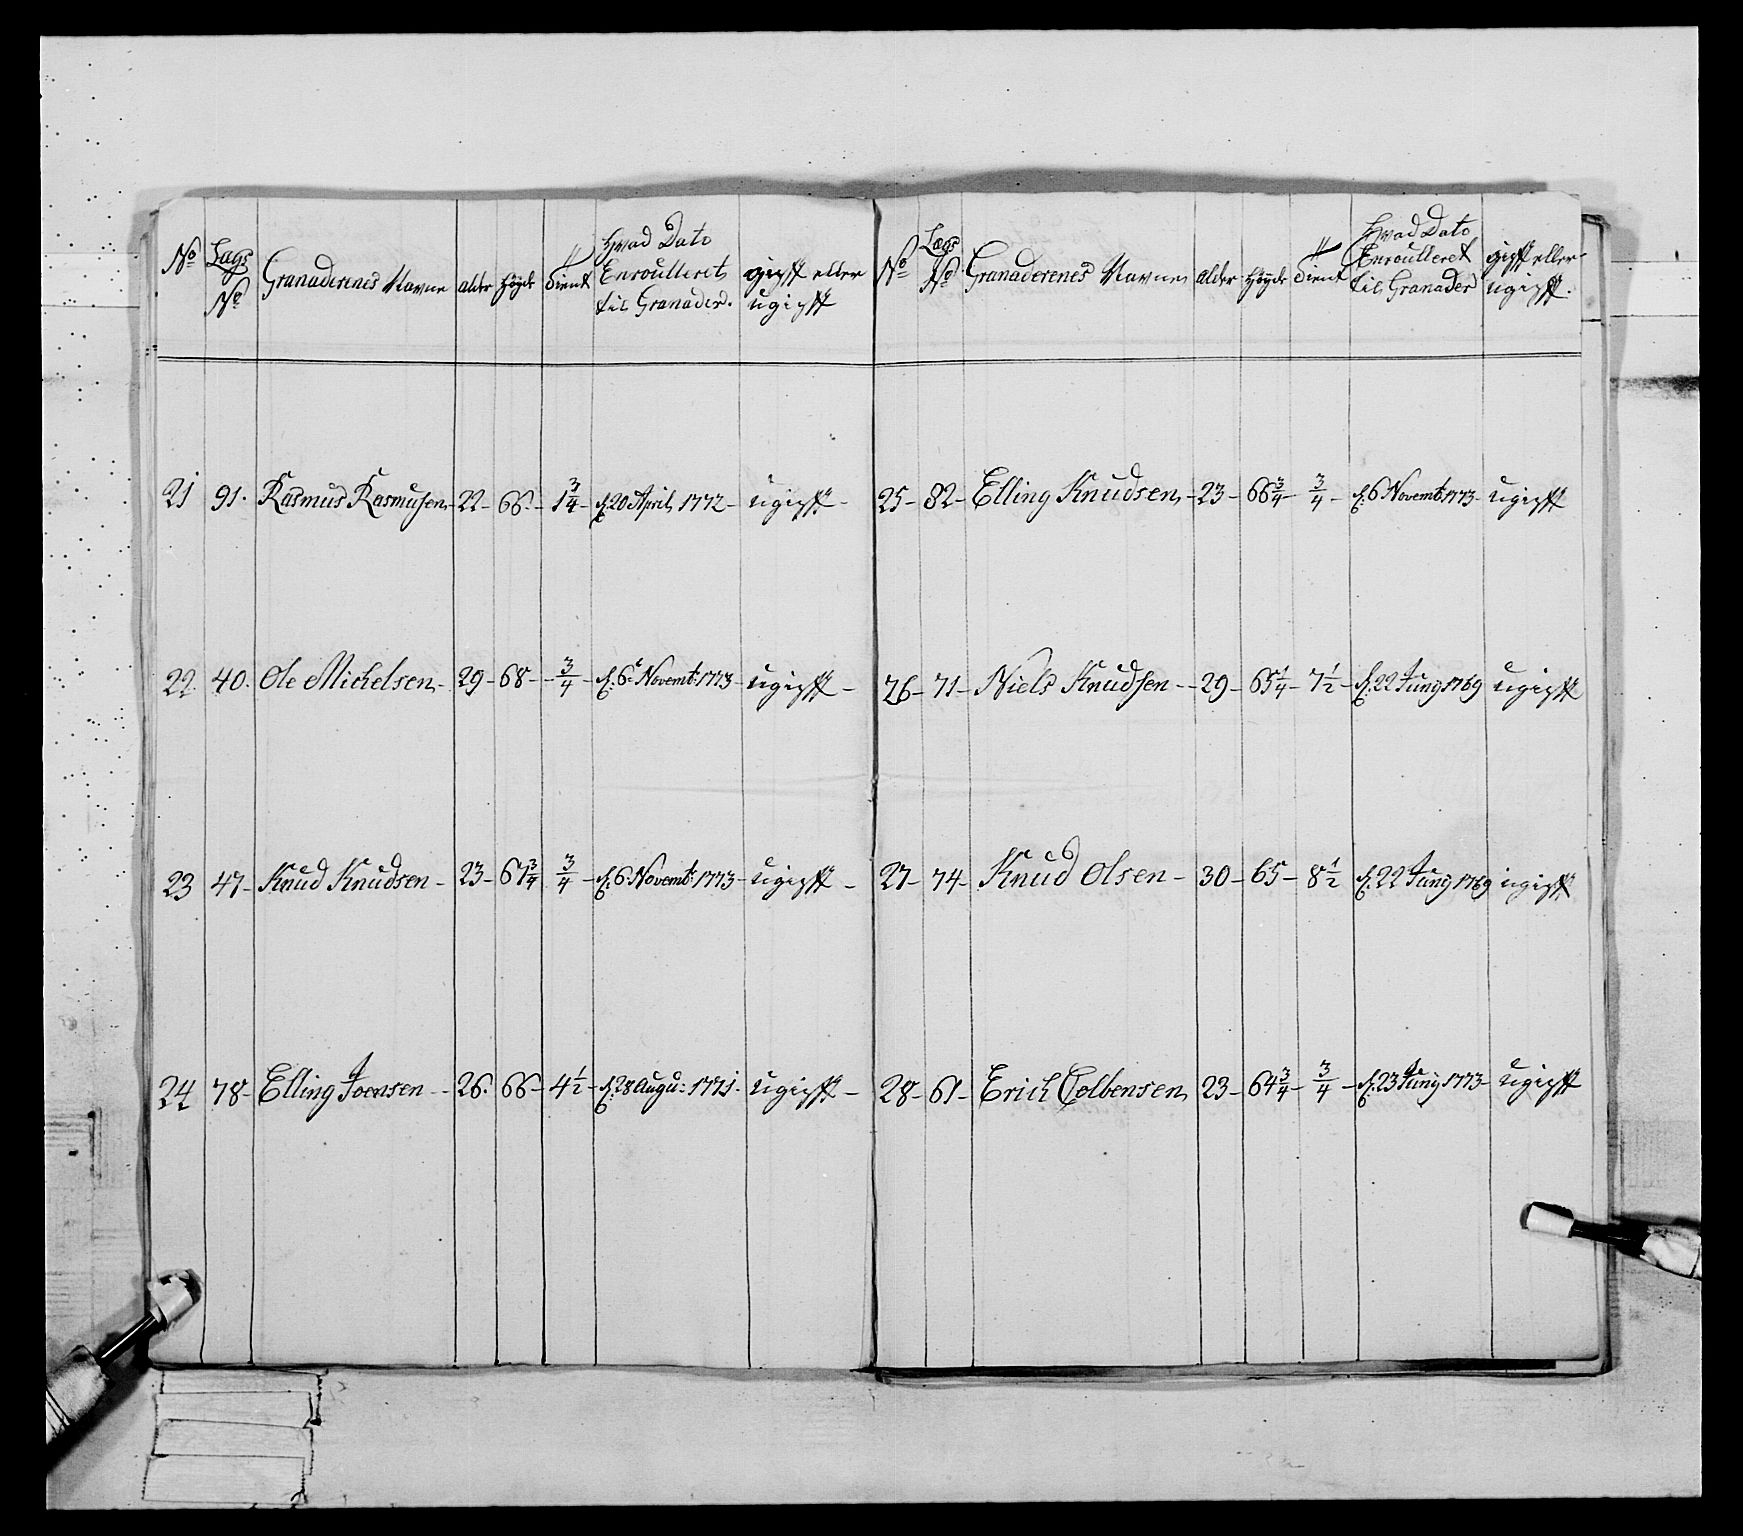 No Lægs No Granaderenes Navne alder höyde dient Hvad Dato Enroulleret til Granader. gipft eller ugipft
21 91. Rasmus Rasmusen 22 - 66. - 1 3/4 - d. 20 April 1772 - ugipft -
22. 40. Ole Michelsen - 29 - 68 - 3/4 - d. 6te Novembr. 1773 - ugipft -
23 47 - Knud Knudsen - 23 - 67 3/4 3/4 - d. 6 Novembr. 1773 - ugipft -
24 78 - Elling Joensen - 26. 66 - 4 1/2 - d. 28 Augu: 1771. ugipft -
No Lægs No. Granaderenes Navne alder höyde dient Hvad Dato Enroulleret til Granader gipft eller ugipft.
25 - 82 - Elling Knudsen - 23 - 66 3/4 - 3/4 - d. 6 Novembr. 1773 - ugipft
26 - 71 - Niels Knudsen - 29 - 65 1/4 - 7 1/2 - d. 22 Junij 1769 ugipft
27 - 74 - Knud Olsen - 30 - 65 - 8 1/2 d. 22 Junij 1769 ugipft
28 - 61 - Erich Colbensen 23 - 64 3/4 - 3/4 - d. 23 Junij 1773 - ugipft